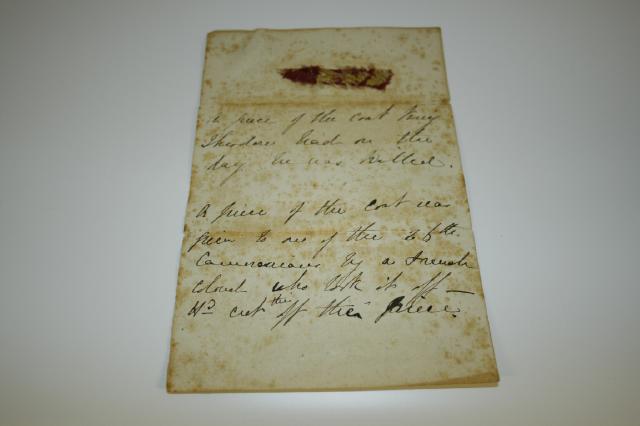 A piece of the coat King
Theodore had on the
day he was killed.
A piece of the coat was
given to one of the 26th
Cameronians by a French
colonel who took it off
& cut this off the piece.